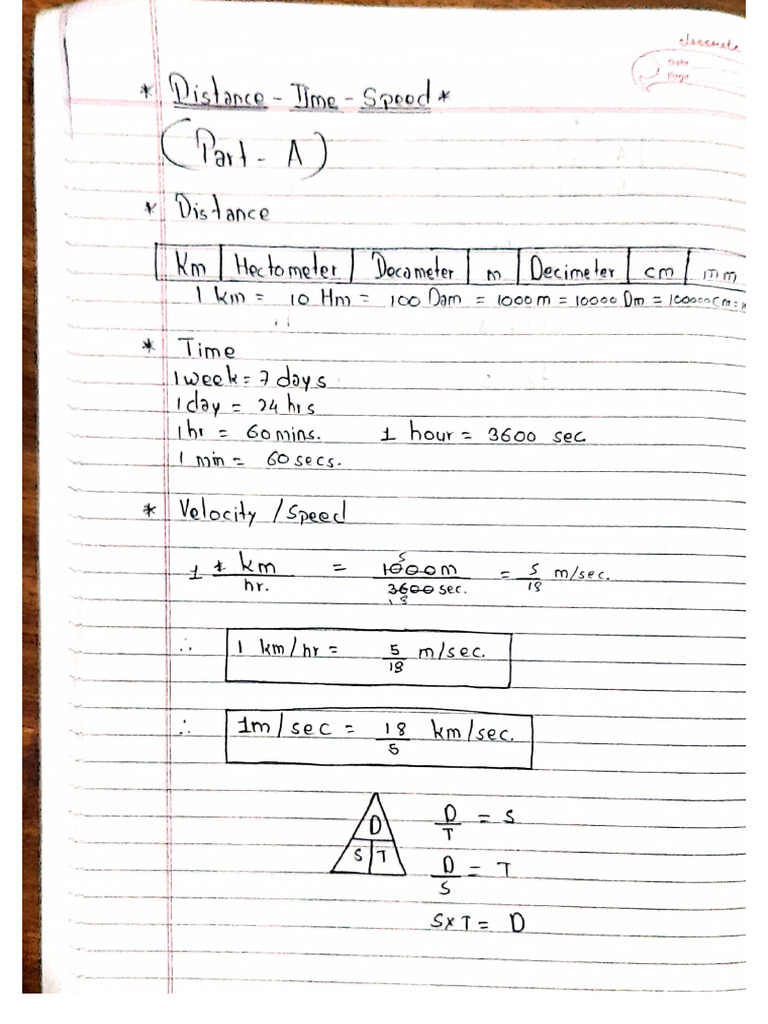 classmate
Date
Page
* Distance - Time - Speed *
(Part - A)
* Distance
Km | Hectometer | Decameter | m | Decimeter | cm | mm
1 km = 10 Hm = 100 Dam = 1000m = 10000 Dm = 100000cm =
* Time
1 week = 7 days
1 day = 24 hrs
1hr = 60 mins. 1 hour = 3600 sec
1 min = 60 secs.
* Velocity / Speed
1 * km/hr. = 1000m/3600 sec. = 5/18 m/sec.
5
18
∴ 1 km/hr = 5/18 m/sec.
∴ 1m/sec = 18/5 km/sec.
D
S T
D/T = S
D/S = T
S×T = D